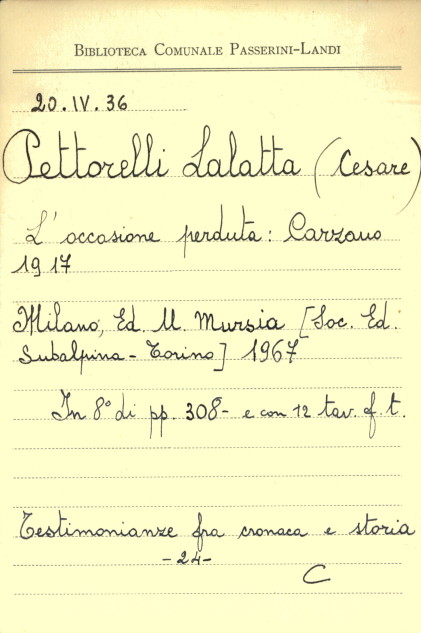 BIBLIOTECA COMUNALE PASSERINI-LANDI
20.IV.36
Pettorelli Lalatta (Cesare)
L'occasione perduta: Carzano
1917
Milano, Ed. U. Mursia [Soc. Ed.
Subalpina - Torino] 1967
In 8° di pp. 308- e con 12 tav. f. t.
Testimonianze fra cronaca e storia
-24-
C